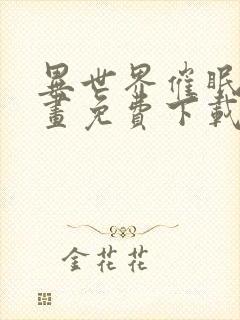 異世界催眠
畫免費下載
金花花